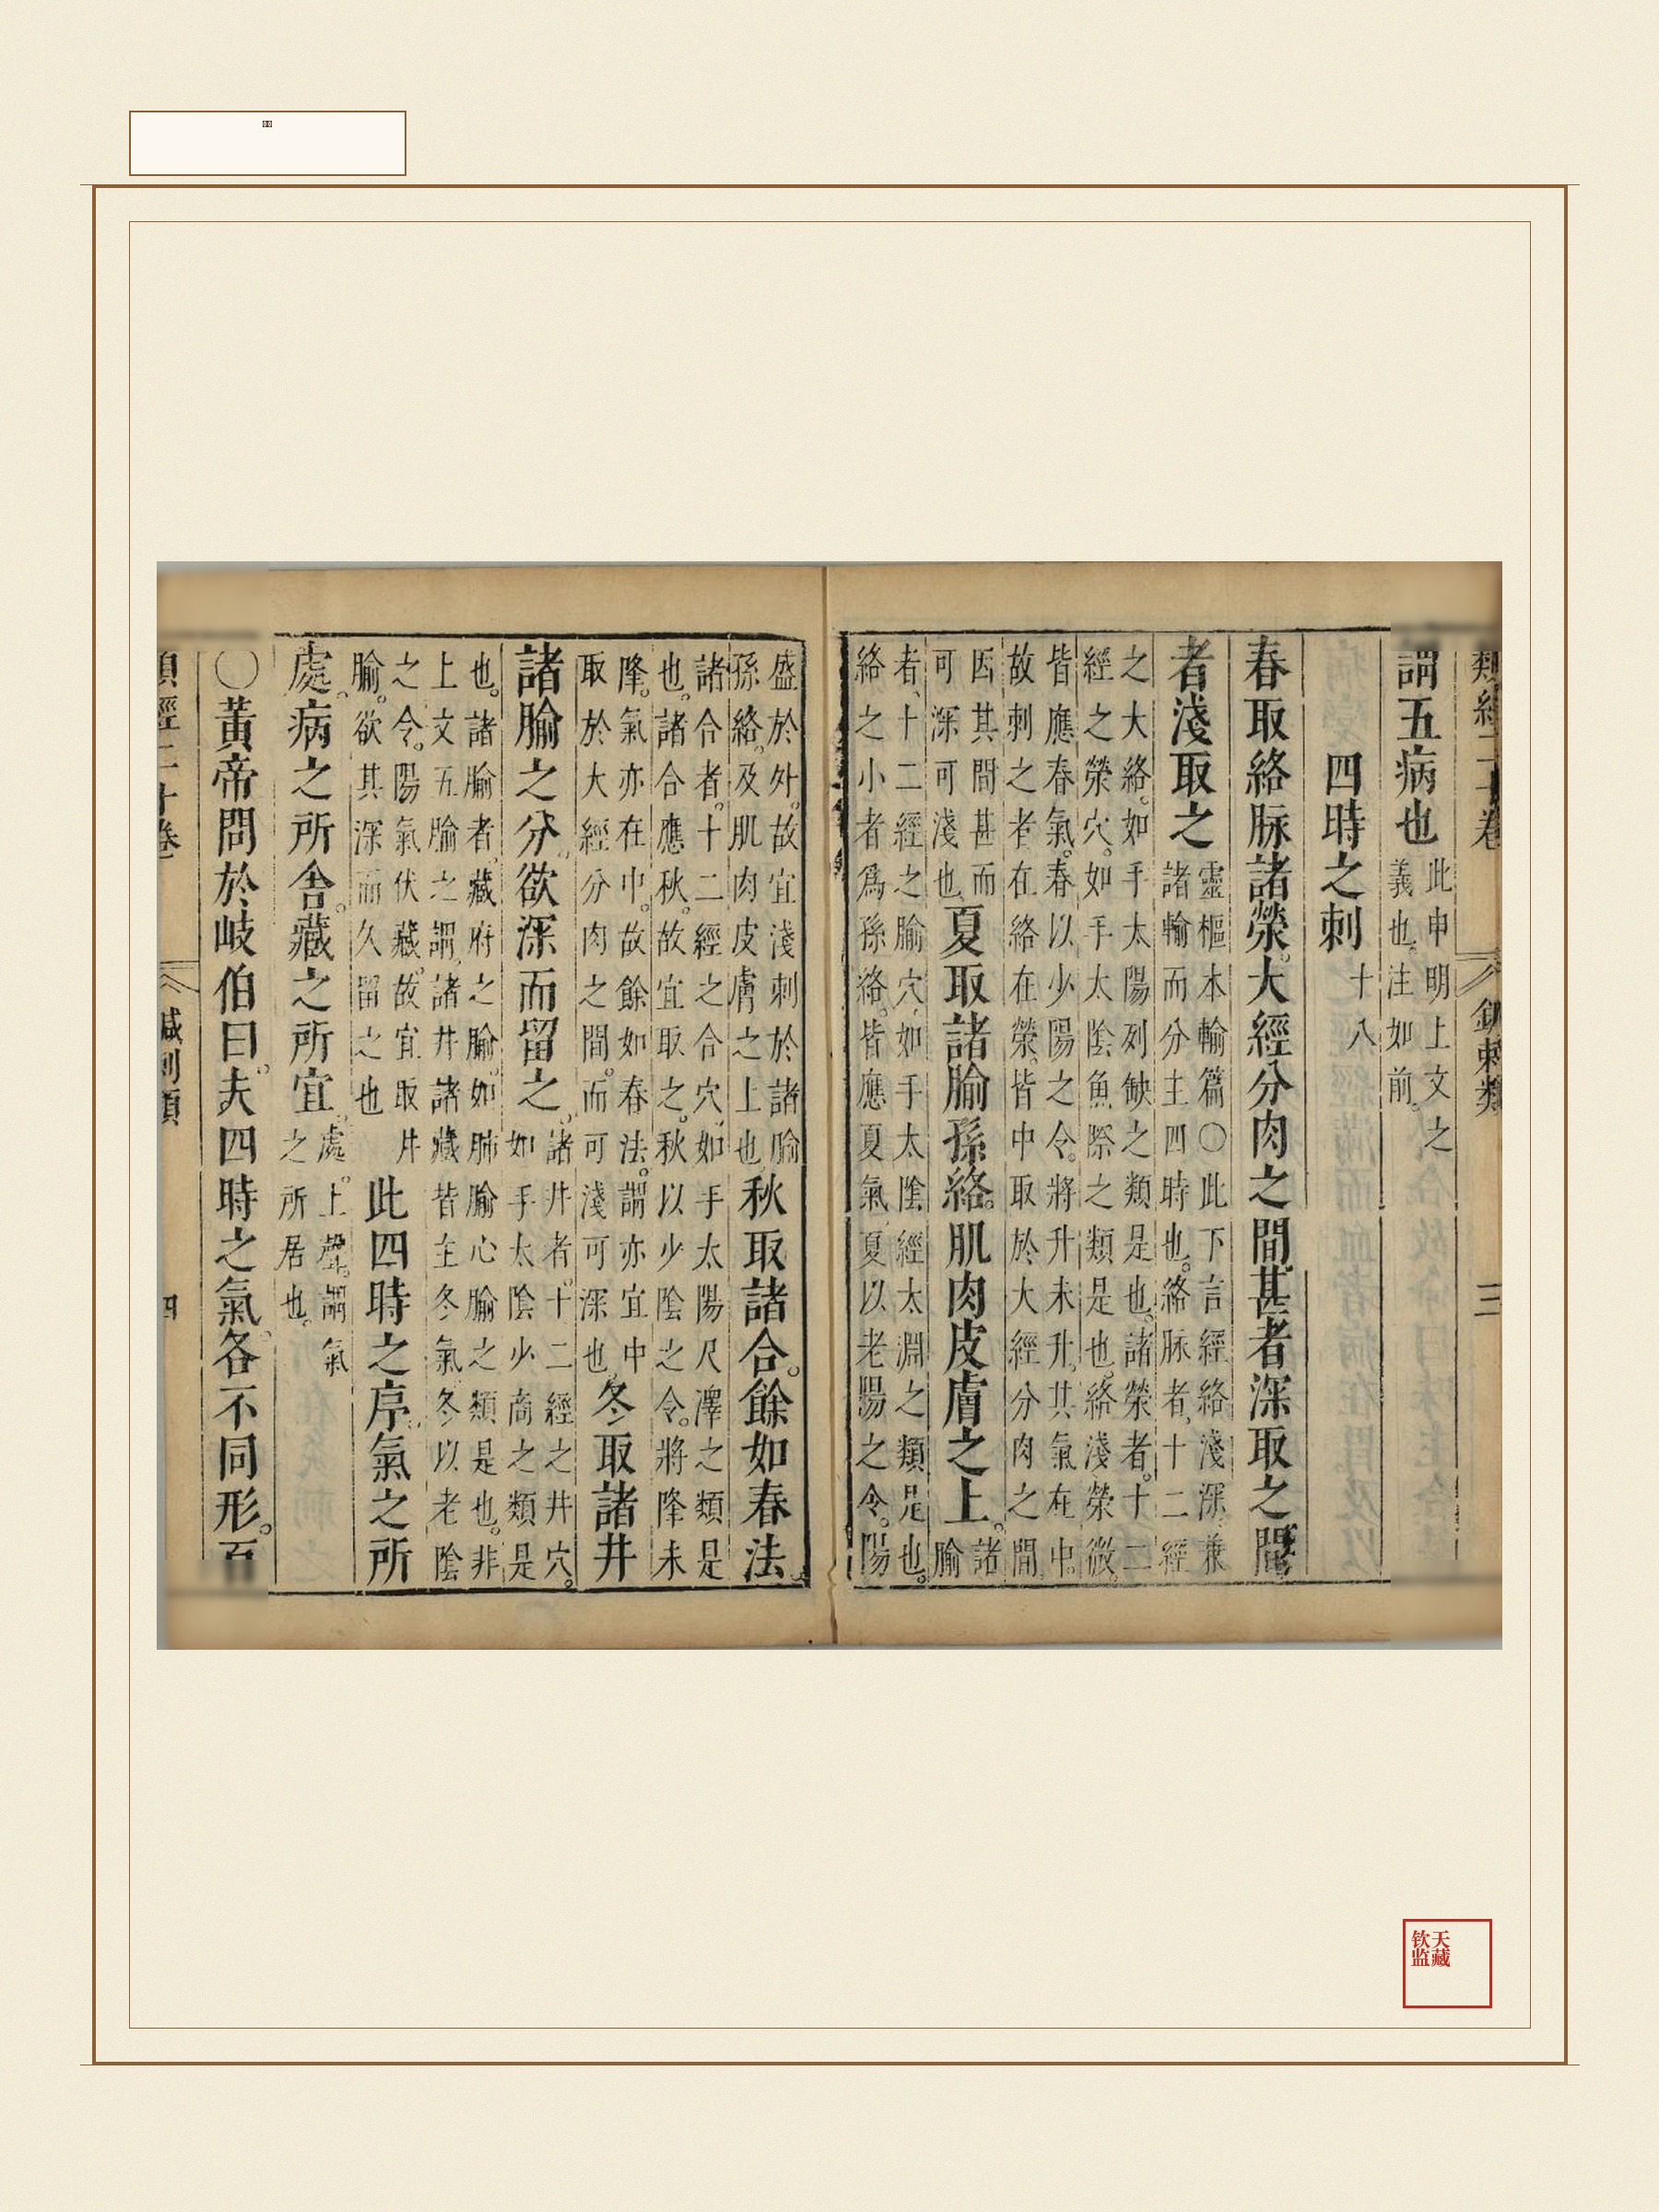 類經二十卷 鍼刺類 三
謂五病也 此申明上文之
義也。注如前。
四時之刺 十八
春取絡脉諸榮。大經分肉之間。甚者深取之。間
者淺取之 靈樞本輸篇○此下言經絡淺深。兼
諸輸而分主四時也。絡脉者、十二經
之大絡。如手太陽列缺之類是也。諸榮者。十二
經之榮穴。如手太陰魚際之類是也。絡淺榮微。
皆應春氣。春以少陽之令。將升未升。其氣在中。
故刺之者在絡在榮。皆中取於大經分肉之間
因其間甚而
可深可淺也 夏取諸腧孫絡。肌肉皮膚之上。 諸
腧
者、十二經之腧穴、如手太陰經太淵之類是也。
絡之小者爲孫絡。皆應夏氣。夏以老陽之令。陽
盛於外。故宜淺刺於諸腧
孫絡。及肌肉皮膚之上也 秋取諸合。餘如春法。
諸合者。十二經之合穴、如手太陽尺澤之類是
也。諸合應秋。故宜取之。秋以少陰之令。將降未
降。氣亦在中。故餘如春法。謂亦宜中
取於大經分肉之間。而可淺可深也 冬取諸井
諸腧之分、欲深而留之。 諸井者。十二經之井穴。
如手太陰少商之類是
也。諸腧者、藏府之腧。如肺腧心腧之類是也。非
上文五腧之謂。諸井諸藏皆主冬氣。冬以老陰
之令。陽氣伏藏。故宜取井
腧。欲其深而久留之也 此四時之序。氣之所
處。病之所舍。藏之所宜。 處上聲。謂氣
之所居也。
○黃帝問於岐伯曰。夫四時之氣。各不同形。百
類經二十卷 鍼刺類 四
钦天
监藏